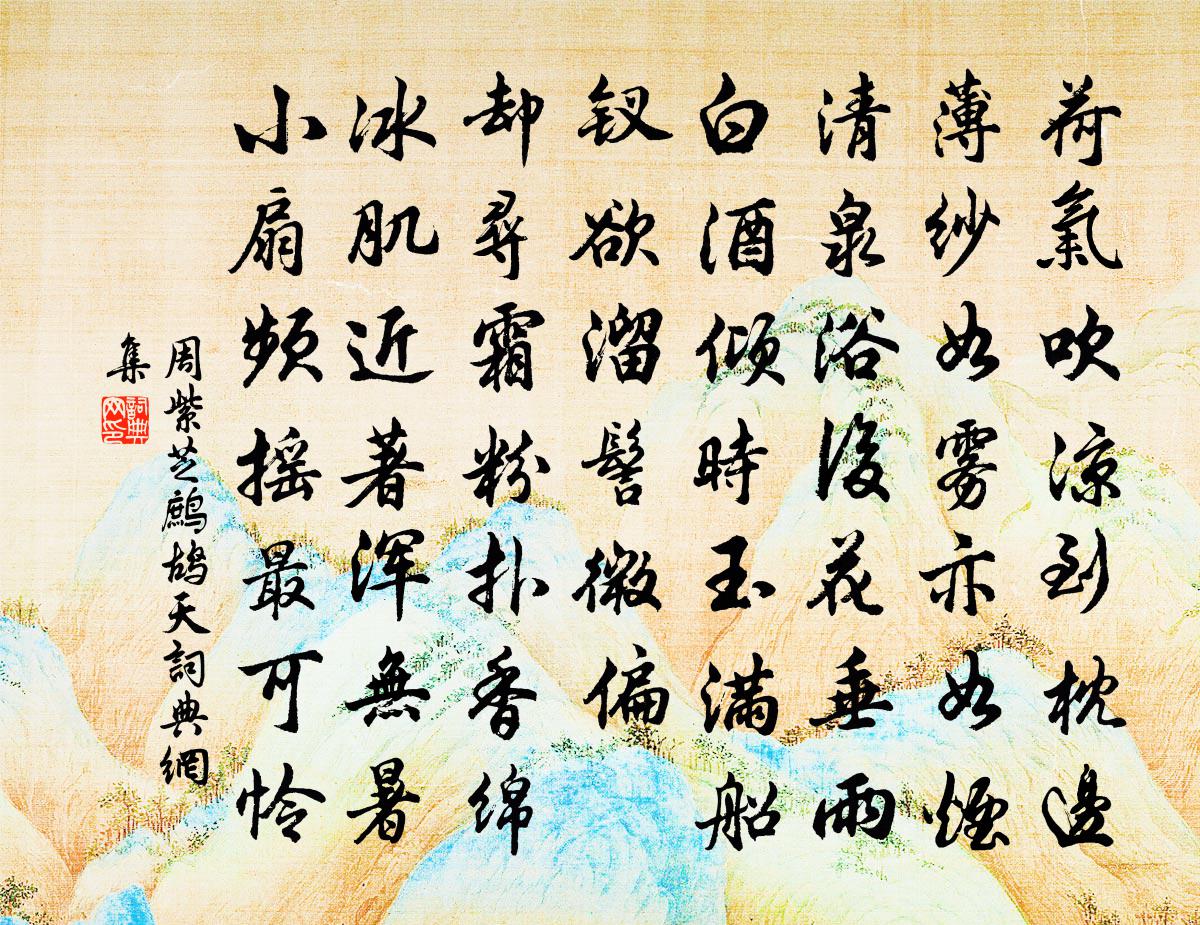 荷氣吹涼到枕邊
薄紗如雾亦如煙
清泉浴後花垂雨
白酒倾時玉满船
钗欲溜髻微偏
却尋霜粉扑香绵
冰肌近著浑無暑
小扇频摇最可怜
周紫芝鷓鴣天詞典網
集
詞典
网印